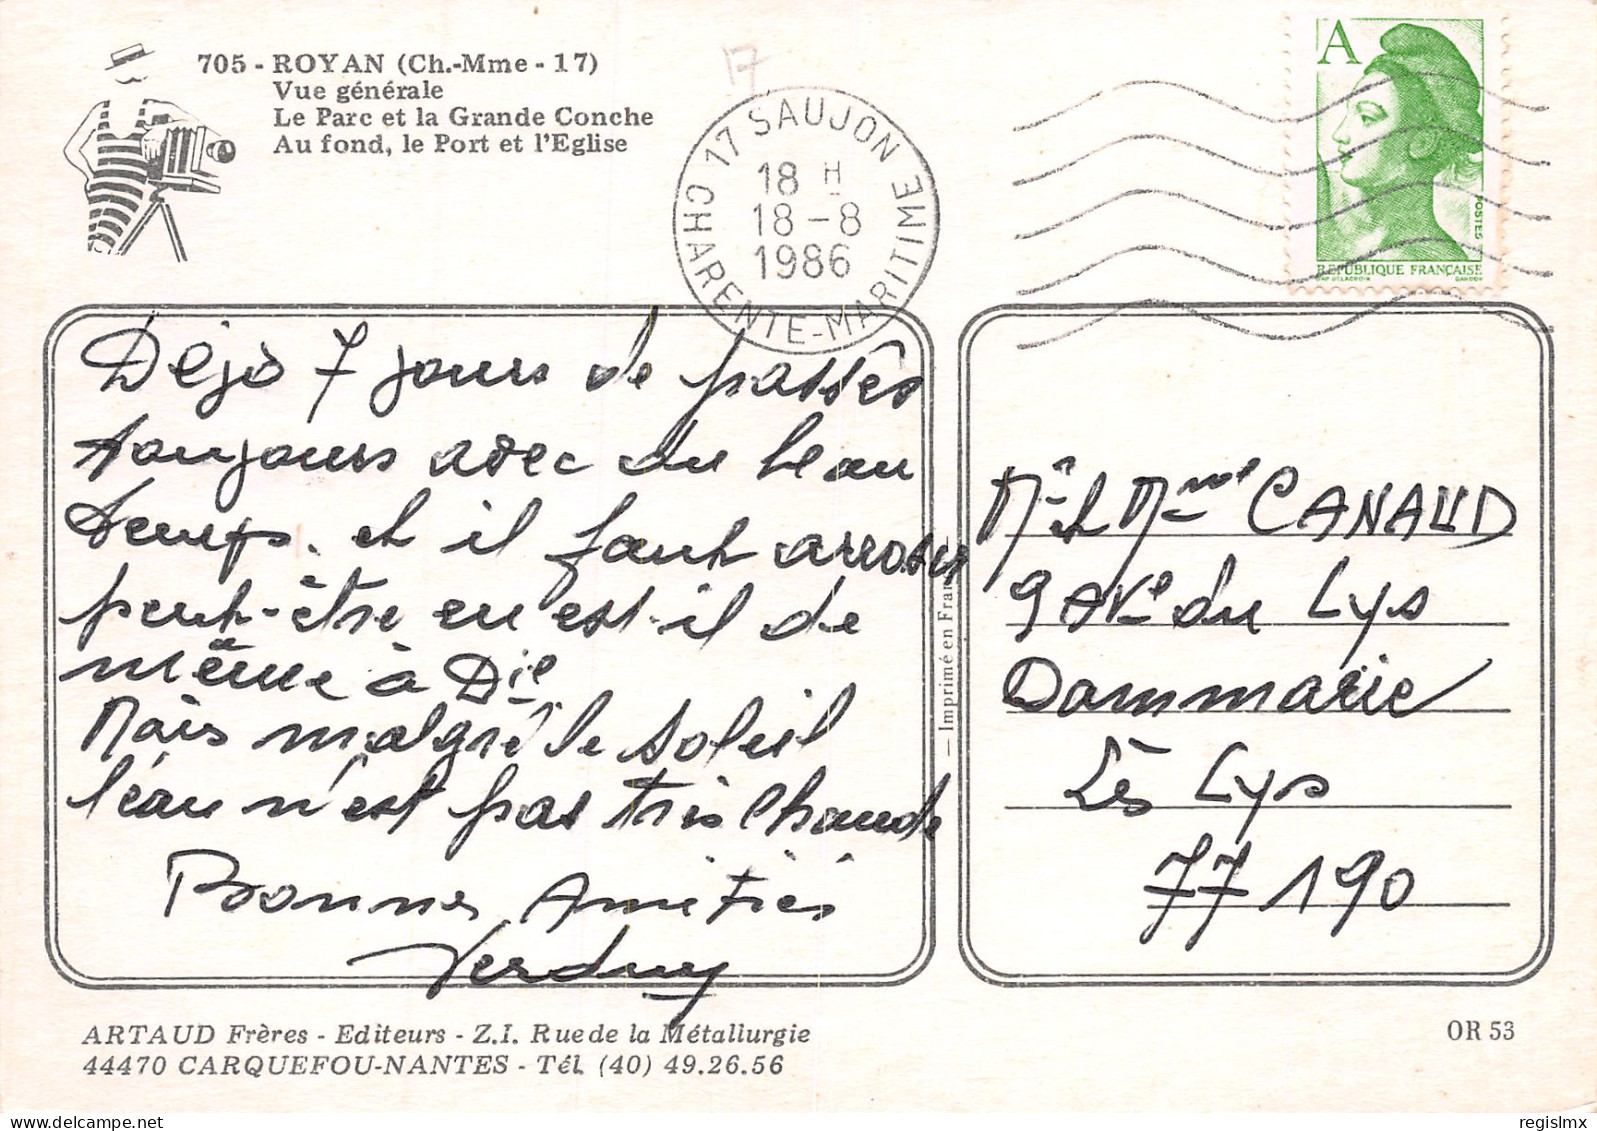 705 - ROYAN (Ch.-Mme - 17)
Vue générale
Le Parc et la Grande Conche
Au fond, le Port et l'Eglise
17
17 SAUJON
18 H
18 - 8
1986
CHARENTE-MARITIME
A
POSTES
REPUBLIQUE FRANÇAISE
Déjà 7 jours de passés
toujours avec du beau
temps. et il faut arroser
peut-être en est-il de
même à Die
Mais malgré le soleil
l'eau n'est pas très chaude
Bonnes Amitiés
Mr et Mme CANAUD
9 Ave du Lys
Dammarie
Lès Lys
77190
— Imprimé en France
ARTAUD Frères - Editeurs - Z.I. Rue de la Métallurgie
44470 CARQUEFOU-NANTES - Tél. (40) 49.26.56
OR 53
regislmx